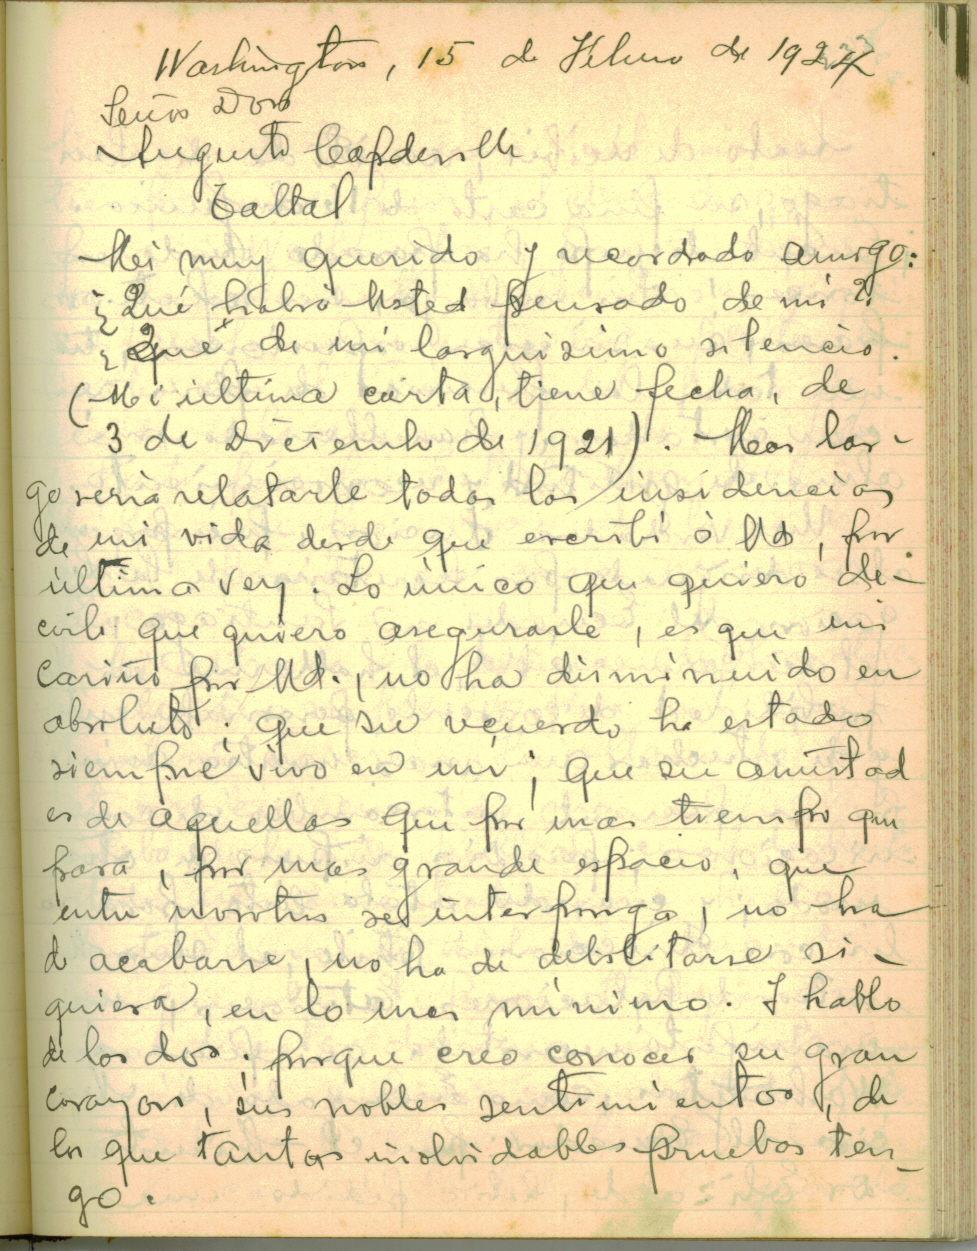 Washington, 15 de Febrero de 1924
Señor Don
Augusto Capdeville
Taltal
Mi muy querido y recordado amigo:
¿Qué habrá Usted pensado de mi?
¿Qué de mi larguisimo silencio.
(Mi última carta, tiene fecha, de
3 de Diciembre de 1921). Mas lar-
go seria relatarle todas las insidencias
de mi vida desde que escribí á Ud, por
última vez. Lo único que quiero de-
cirle, que quiero asegurarle, es que mi
cariño por Ud., no ha disminuido en
absoluto; que su recuerdo ha estado
siempre vivo en mi; que su amistad
es de aquellas que por mas tiempo que
pasa, por mas grande espacio, que
entre nosotros se interponga, no ha
de acabarse, no ha de debilitarse si-
quiera, en lo mas minimo. I hablo
de los dos; porque creo conocer su gran
corazon, sus nobles sentimientos, de
los que tantas inolvidables pruebas ten-
go.